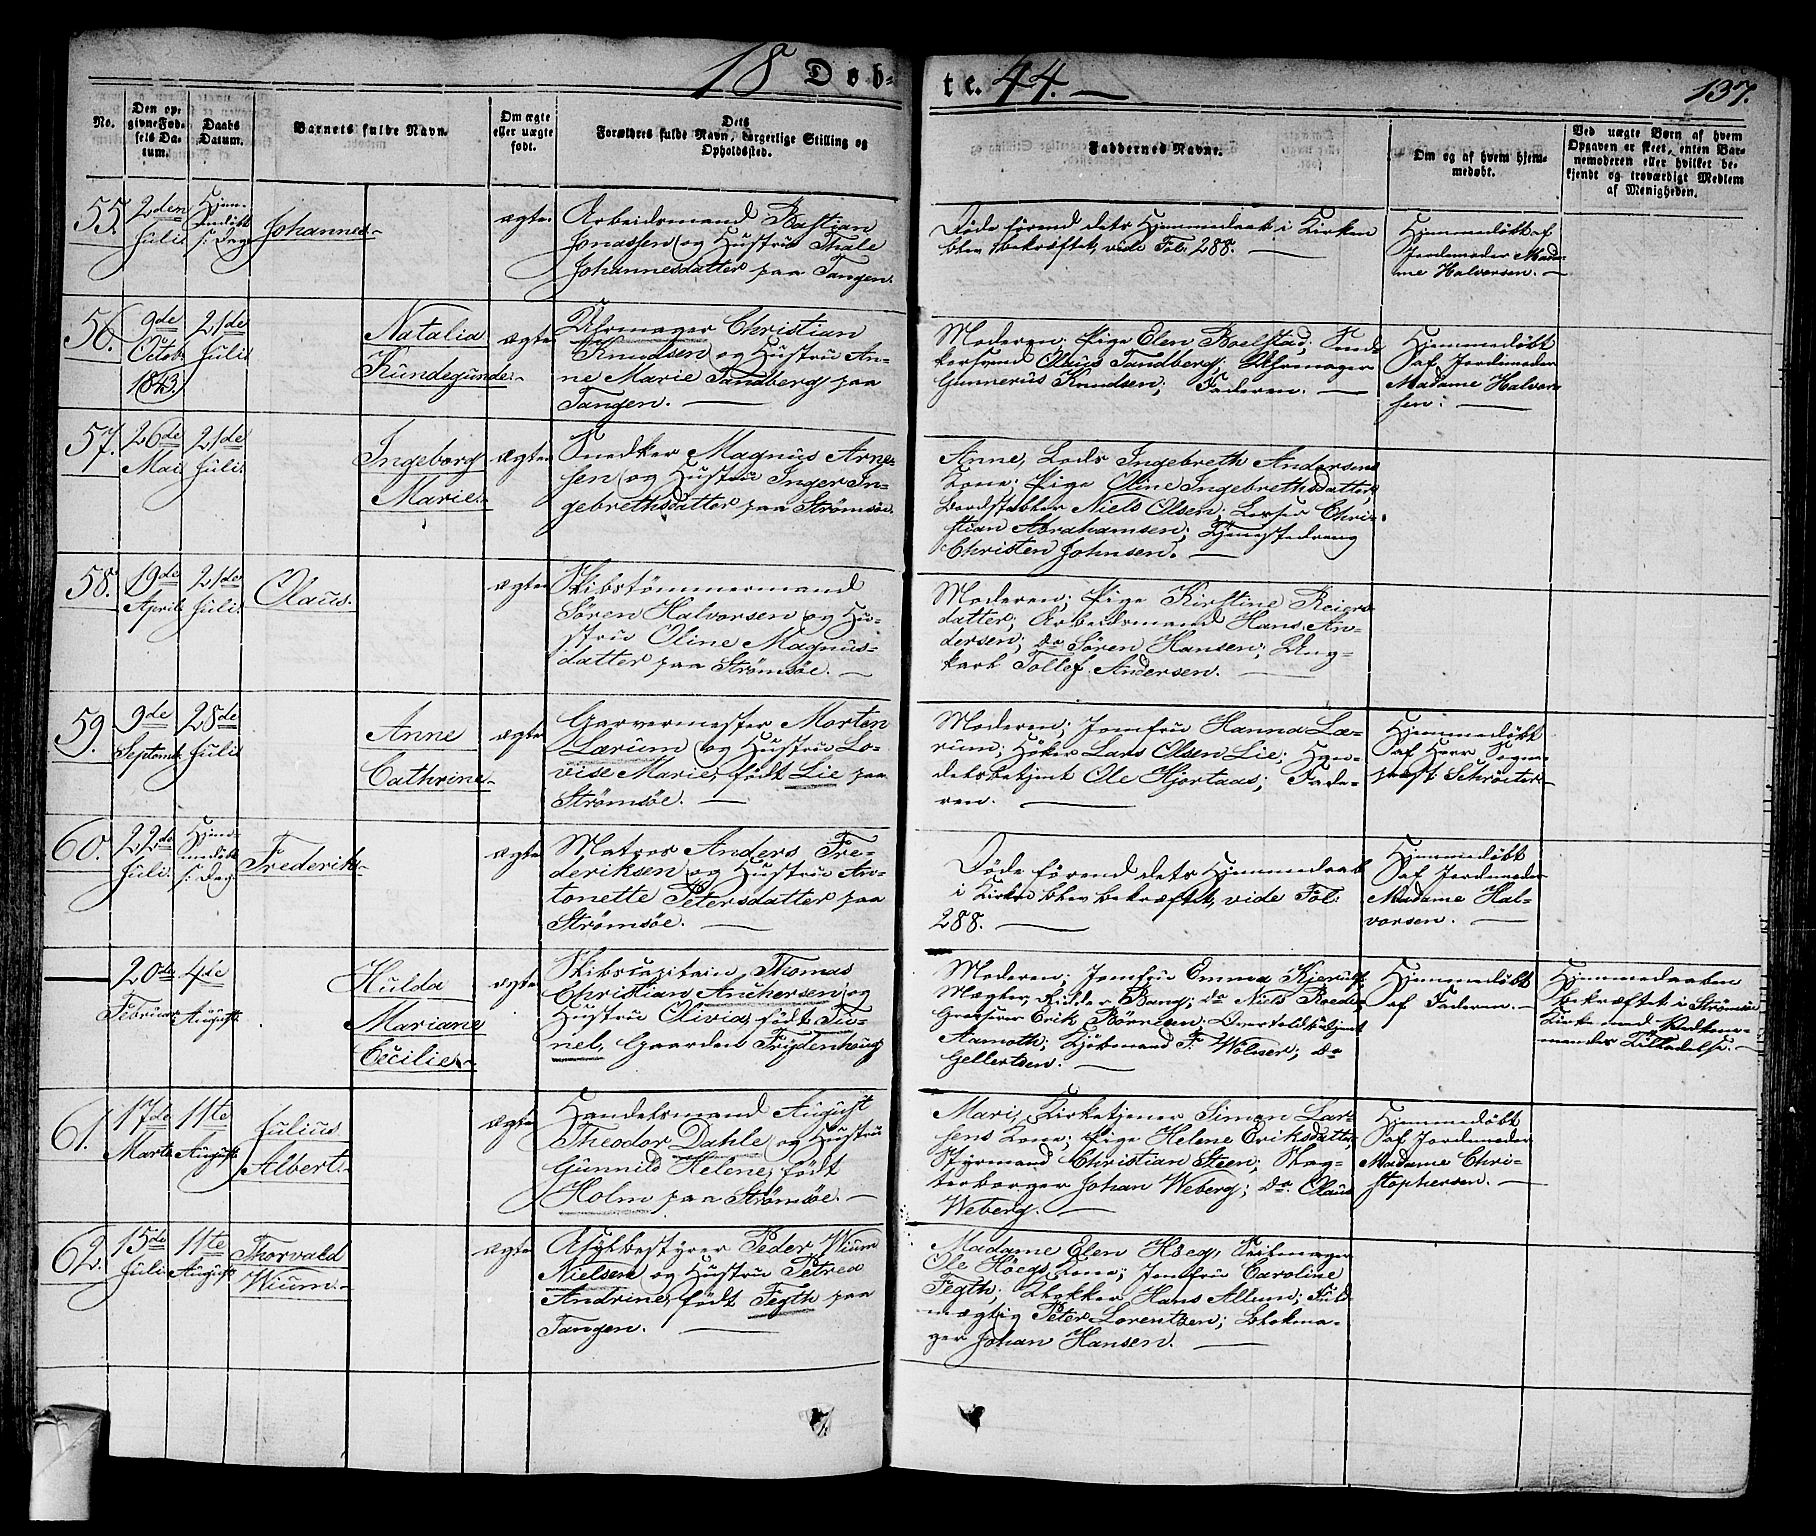 18 Døb-
te. 44.
137.
No.
Den op-
givne Fød-
sels Da-
tum.
Daabs
Datum.
Barnets fulde Navn.
Om ægte
eller uægte
født.
Dets
Forældres fulde Navn, borgerlige Stilling og
Opholdssted.
Faddernes Navne.
Om og af hvem hjem-
medøbt.
Ved uægte Børn af hvem
Opgaven er skeet, enten Bar-
nemoderen eller hvilket be-
kjendt og troværdigt Medlem
af Menigheden.
55.
2den
Juli
Hjem-
medøbt
s: Dag
Johannes.
ægte
Arbeidsmand Bastian
Jonassen og Hustru Thale
Johannesdatter paa Tangen.
Døde førend dets Hjemmedaab i Kirken
blev bekræftet, vide Fol. 288.
Hjemmedøbt af
Jordemoder Mada-
me Halvorsen.
56.
9de
Octob.
1843.
21de
Juli
Natalia
Kundegunde.
ægte
Uhrmager Christian
Knudsen og Hustru An-
ne Marie Sandberg paa
Tangen.
Moderen; Pige Elen Boelstad; Sned-
kersvend Olaus Sandberg; Uhrmager
Gunnerus Knudsen; Faderen.
Hjemmedøbt
af Jordemoder
Madame Halvor-
sen.
57.
26de
Mai
21de
Juli
Ingeborg
Marie.
ægte
Snedker Magnus Arne-
sen og Hustru Inger In-
gebrethsdatter paa Strømsøe.
Anne, Lods Ingebreth Andersens
Kone; Pige Oline Ingebrethsdatter;
Bordstabler Niels Olsen; Losser Chri-
stian Abrahamsen; Tjenestedreng
Christen Johnsen.
58.
19de
April
21de
Juli
Olaus.
ægte
Skibstømmermand
Søren Halvorsen og Hu-
stru Oline Magnus-
datter paa Strømsøe.
Moderen; Pige Kirstine Reiers-
datter; Arbeidsmand Hans An-
dersen; do Søren Hansen; Ung-
karl Tollef Andersen.
59.
9de
Septembr.
28de
Juli
Anne
Cathrine.
ægte
Garvermester Morten
Lærum og Hustru Lo-
vise Marie, født Lie paa
Strømsøe.
Moderen; Jomfru Hanna Læ-
rum; Høker Lars Olsen Lie; Han-
delsbetjent Ole Hjortaas; Fade-
ren.
Hjemmedøbt
af Herr Sogne-
præst Schröeter.
60.
22de
Juli
Hjem-
medøbt
s: Dag
Frederik.
ægte
Matros Anders Fre-
deriksen og Hustru An-
tonette Petersdatter paa
Strømsøe.
Døde førend dets Hjemmedaab
i Kirken blev bekræftet, vide Fol:
288.
Hjemmedøbt
af Jordemoder
Madame Hal-
vorsen.
20de
Februar
4de
August
Hulda
Mariane
Cecilie.
ægte
Skibscapitain Thomas
Christian Anchersen og
Hustru Olivia, født Tu-
nel, Gaarden Frydenhaug
Moderen; Jomfru Emma Kjerulf;
Mægler, Ridder Bang; do Niels Roed;
Grosserer Erik Börresen; Overtoldbetjent
Aamoth; Kjøbmand F. Wölner; do
Gellertsen.
Hjemmedøbt
af Faderen.
Hjemmedaaben
bekræftet i Strømsøe
Kirke med Vedkom-
mendes Tilladelse.
61.
17de
Marts
11te
August
Julius
Albert.
ægte
Handelsmand August
Theodor Dahle og Hustru
Gunnild Helene, født
Holm paa Strømsøe.
Mari, Kirketjener Simen Lar-
sens Kone; Pige Helene Eriksdatter;
Styrmand Christian Steen; Skag-
terborger Johan Weberg; do Olaus
Weberg.
Hjemmedøbt
af Jordemoder
Madame Chri-
stophersen.
62.
15de
Juli
11te
August
Thorvald
Wium.
ægte
Asylbestyrer Peder Wium
Nielsen og Hustru Petrea
Andrine, født Fegth paa
Tangen.
Madame Elen Høeg, Seilmager
Ole Høegs Kone; Jomfru Caroline
Fegth; Klokker Hans Allum; Fuld-
mægtig Peter Lorentzen; Blokma-
ger Johan Hansen.